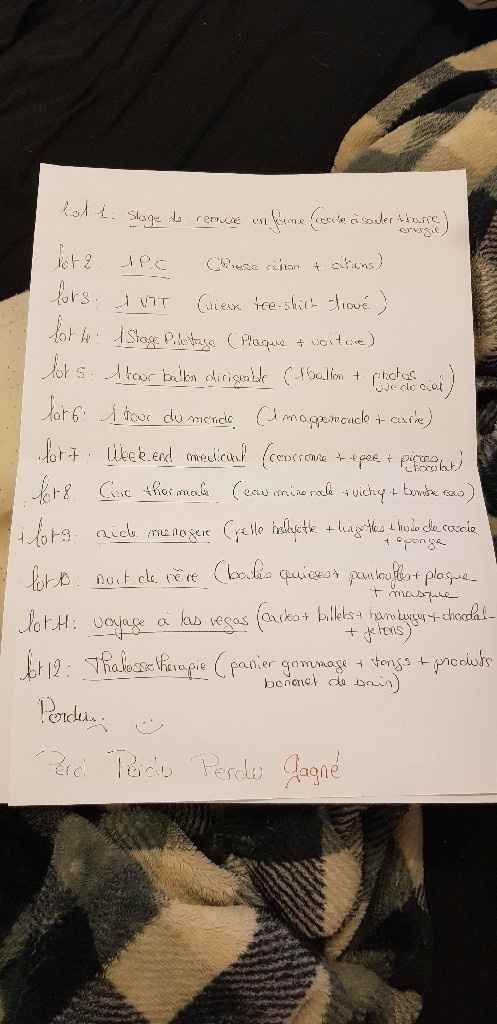 lot 1: Stage de remise en forme (corde à sauter + barre
energie)
lot 2 1 P.C (Presse citron + citrons)
lot 3: 1 VTT (vieux tee-shirt troué)
lot 4: 1 Stage Pilotage (Plaque + voiture)
lot 5: 1 tour ballon dirigeable (1 ballon + photos
vue du ciel)
lot 6: 1 tour du monde (1 mappemonde + carte)
lot 7: Week-end medieval (couronne + epee + pieces
chocolat)
lot 8 Cure thermale (eau minerale + vichy + bombe eau)
+ lot 9: aide menagere (pelle balayette + lingettes + huile de coude
+ eponge
lot 10 nuit de rêve (boules quies + pantoufles + plaque
+ masque
lot 11: voyage à las vegas (cartes + billets + hamburger + chocolat
+ jetons)
lot 12: Thalassotherapie (panier gommage + tongs + produits
bonnet de bain)
Perdu
Perd Perdu Perdu gagné